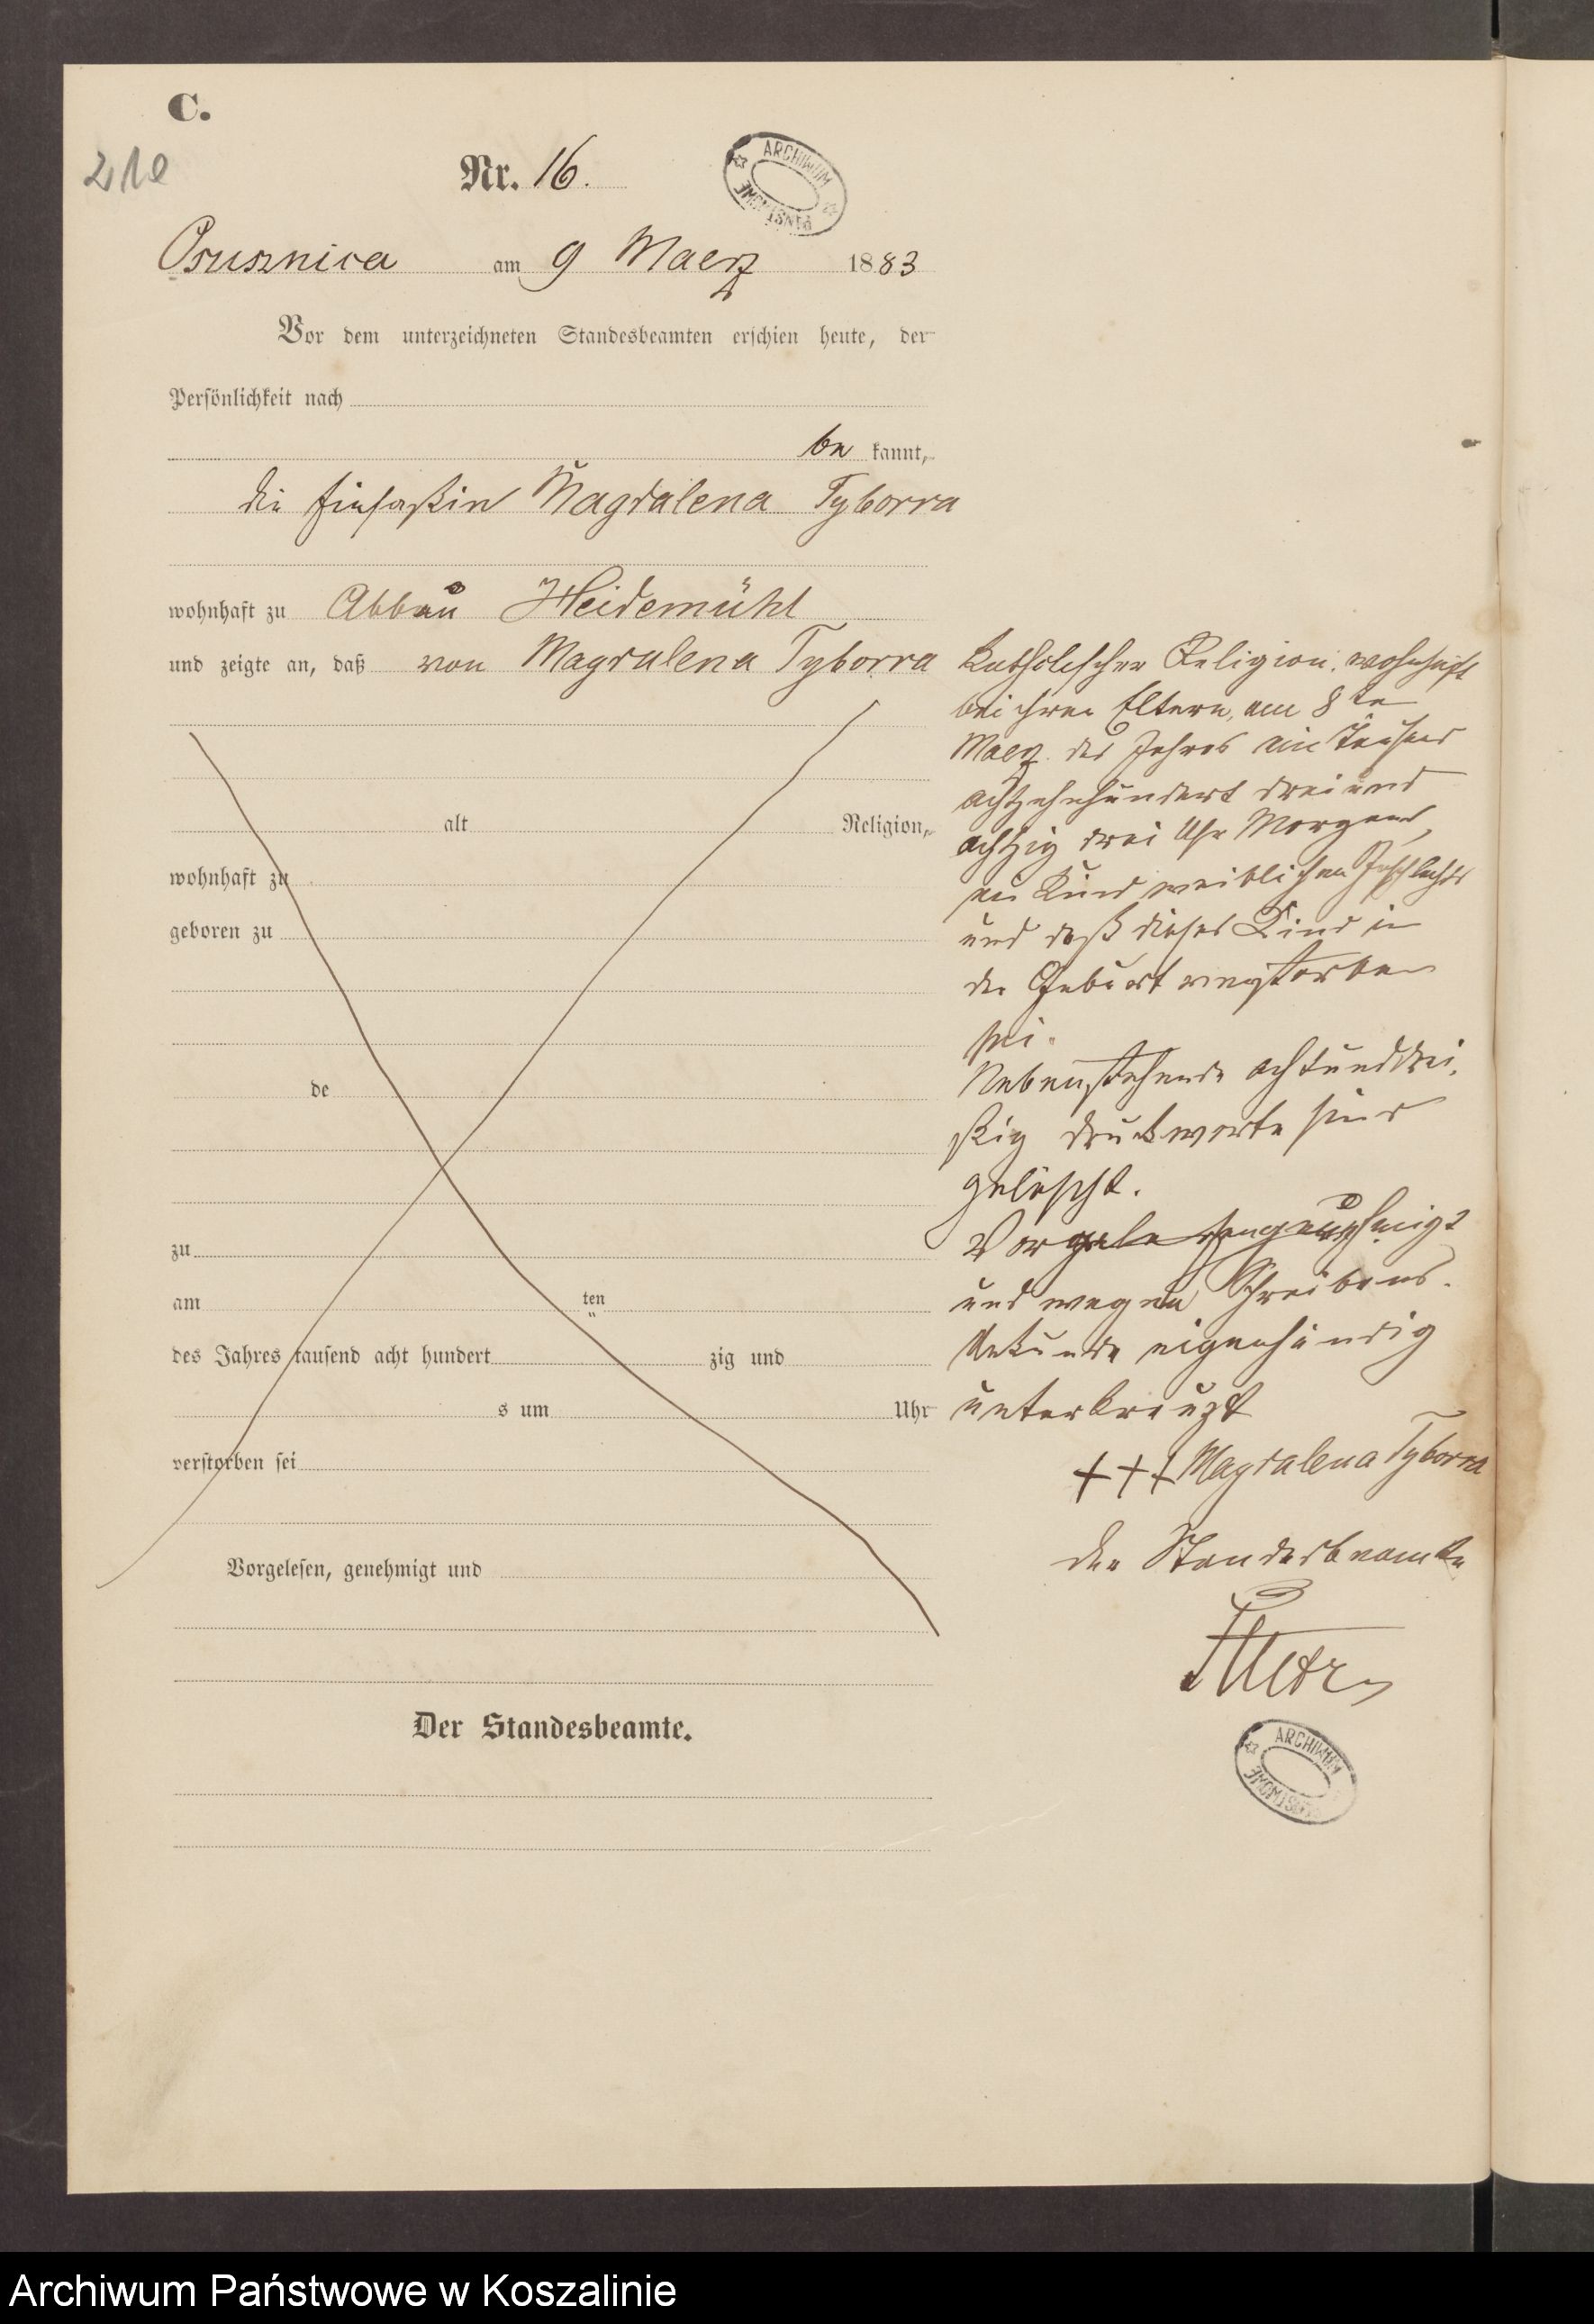 C.
210
Nr. 16.
ARCHIWUM PAŃSTWOWE
Osusznica am 9 Maerz 1883
Vor dem unterzeichneten Standesbeamten erschien heute, der
Persönlichkeit nach
be kannt,
die Einsaßin Magdalena Tyborra
wohnhaft zu Abbau Heidemühl
und zeigte an, daß von Magdalena Tyborra
alt Religion,
wohnhaft zu
geboren zu
de
zu
am ten
des Jahres tausend acht hundert zig und
s um Uhr
verstorben sei
Vorgelesen, genehmigt und
Der Standesbeamte.
Katholischer Religion, wohnhaft
bei ihren Eltern, am 8 te
Maerz des Jahres ein Tausend
achtzehnhundert drei und
achtzig drei Uhr Morgens,
ein Kind weiblichen Geschlechts
und daß dieses Kind in
der Geburt verstorben
sei.
Nebenstehende achtunddrei-
ßig Druckworte sind
gelöscht.
Vorgelesen genehmigt
und wegen Schreibens-
Unkunde eigenhändig
unterkreuzt
+++ Magdalena Tyborra
Der Standesbeamte
ARCHIWUM PAŃSTWOWE
Archiwum Państwowe w Koszalinie